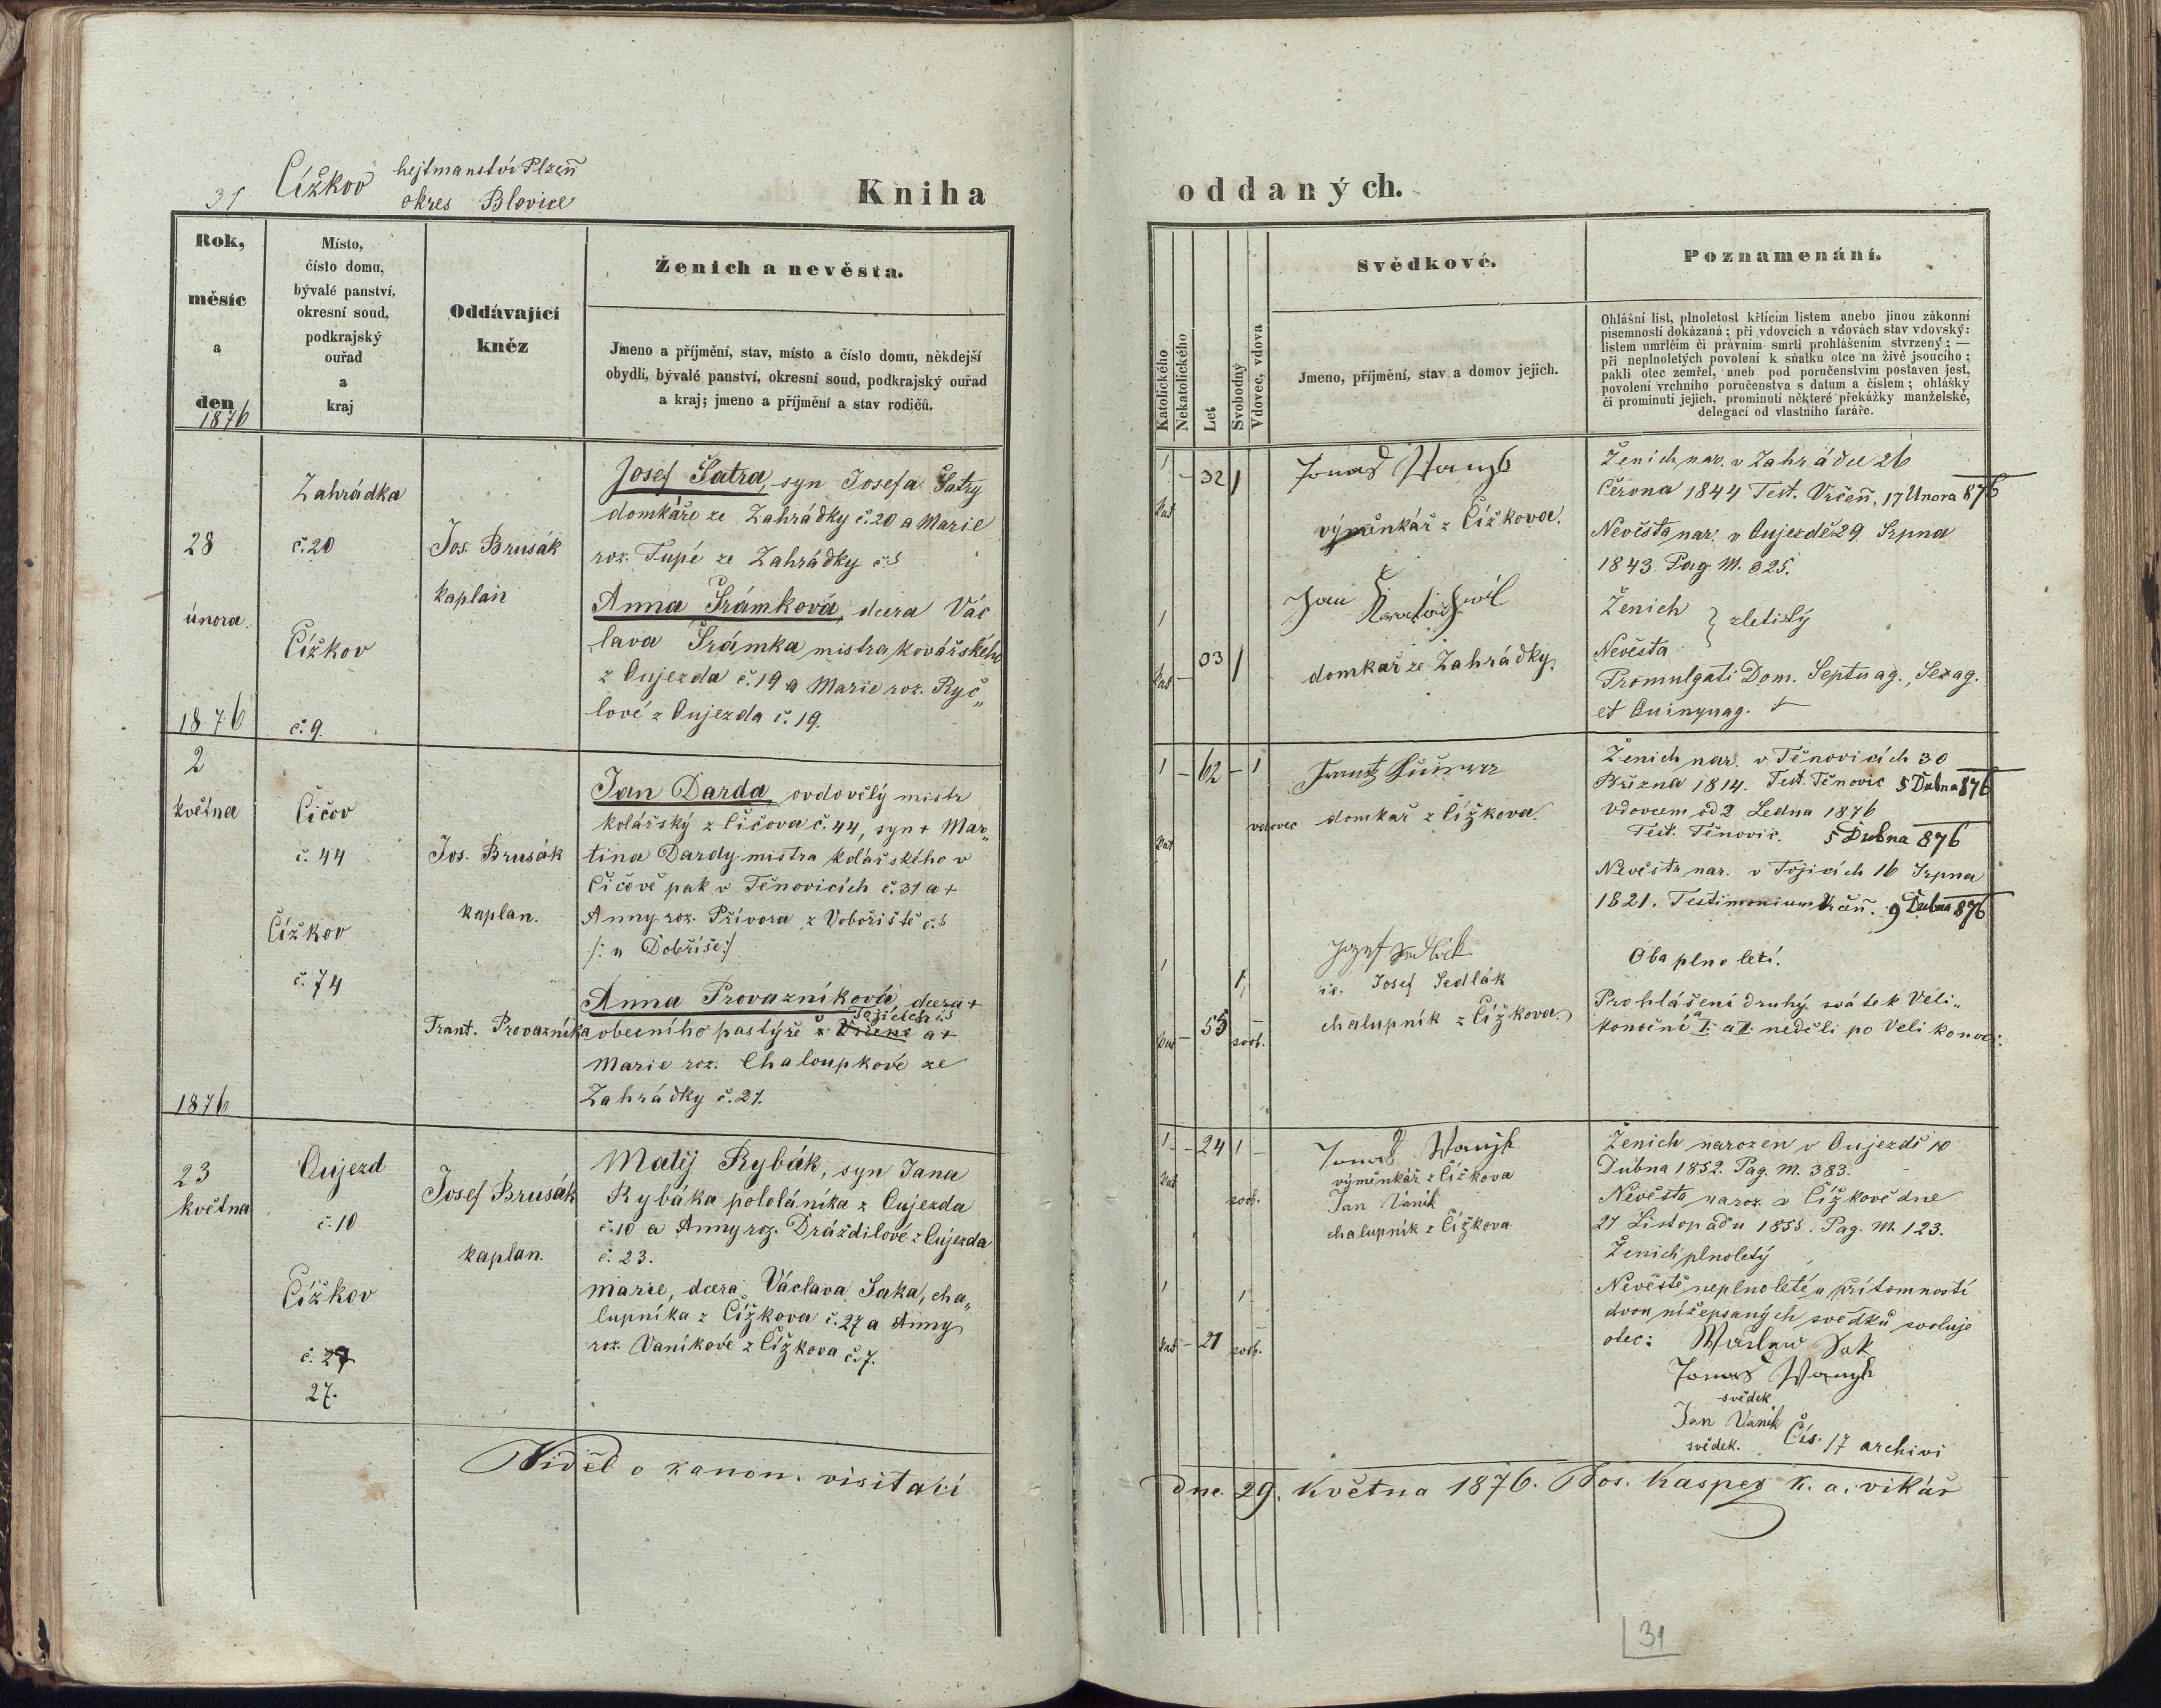 31 Čížkov hejtmanství Plzeň
okres Blovice
Kniha
oddaných.
Rok,
měsíc
a
den
1876
Místo,
číslo domu,
bývalé panství,
okresní soud,
podkrajský
ouřad
a
kraj
Oddávající
kněz
Ženich a nevěsta.
Jmeno a příjmění, stav, místo a číslo domu, někdejší
obydlí, bývalé panství, okresní soud, podkrajský ouřad
a kraj; jmeno a příjmění a stav rodičů.
28
února
1876
Zahrádka
č. 20
Čížkov
č. 9.
Jos. Brusák
kaplan
Josef Šatra, syn Josefa Šatry
domkáře ze Zahrádky č. 20 a Marie
roz. Tupé ze Zahrádky č. 5
Anna Šrámková, dcera Vác
lava Šrámka mistra kovářského
z Oujezda č. 19 a Marie roz. Ryč„
lové z Oujezda č. 19.
2
května
1876
Čičov
č. 44
Čížkov
č. 74
Jos. Brusák
kaplan.
Frant. Provazníka
Jan Darda, ovdovělý mistr
kolářský z Čičova č. 44, syn + Mar„
tina Dardy mistra kolářského v
Čičově pak v Těnovicích č. 31 a +
Anny roz. Přívora z Vobořiště č. 5
/: u Dobříše :/
Anna Provazníková, dcera +
Tojicích č. 5
obecního pastýře v a +
Marie roz. Chaloupkové ze
Zahrádky č. 21.
23
května
Oujezd
č. 10
Čížkov
č. 27
27.
Josef Brusák
kaplan.
Matěj Rybák, syn Jana
Rybáka pololáníka z Oujezda
č. 10 a Anny roz. Dráždilové z Oujezda
č. 23.
Marie, dcera Václava Saka, cha„
lupníka z Čížkova č. 27 a Anny
roz. Vaníkové z Čížkova č. 7.
Viděl o kanon. visitací
Katolického
Nekatolického
Let
Svobodný
Vdovec, vdova
Svědkové.
Jmeno, příjmění, stav a domov jejich.
Poznamenání.
Ohlášní list, plnoletost křticím listem anebo jinou zákonní
písemností dokázaná; při vdovcích a vdovách stav vdovský:
listem umrlčím či právním smrti prohlášením stvrzený; —
při neplnoletých povolení k sňatku otce na živě jsoucího;
pakli otec zemřel, aneb pod poručenstvím postaven jest,
povolení vrchního poručenstva s datum a číslem; ohlášky
či prominutí jejich, prominutí některé překážky manželské,
delegací od vlastního faráře.
1 - 32 1
kat
výměnkář z Čížkova.
Jan
domkař ze Zahrádky
1
kat - 33 1
Ženich nar. v Zahrádce 26
Června 1844 Test. Vrčeň. 17 Února 876
Nevěsta nar. v Oujezdě 29 Srpna
1843 Pag. M. 325.
Ženich
Nevěsta } zletilý
Promulgati Dom. Septuag., Sexag.
et Quinquag.
1 - 62 - 1
kat
vdovec
domkař z Čížkova
1 1
kat - 55 - svob.
ic. Josef Sedlák
chalupník z Čížkova
Ženich nar. v Těnovicích 30
Března 1814. Test. Těnovic 5 Dubna 876
vdovcem od 2 Ledna 1876
Test. Těnovic. 5 Dubna 876
Nevěsta nar. v Tojicích 16 Srpna
1821. Testimonium Vrčeň. 9 Dubna 876
Oba plnoletí.
Prohlášení druhý svátek Veli„
konoční a I. a II. neděli po Velikonoci.
1 - 24 1 -
kat svob.
výměnkář z Čížkova
Jan Vaník
chalupník z Čížkova
1 1
kat - 21 svob.
Ženich narozen v Oujezdě 10
Dubna 1852. Pag. M. 383.
Nevěsta naroz. v Čížkově dne
27 Listopadu 1855. Pag. M. 123.
Ženich plnoletý
Nevěstě neplnoleté u přítomnosti
dvou nížepsaných svědků svoluje
otec: Waclaw Sak
svědek
Jan Vaník
svědek. Čís. 17 archivi
dne 29. Května 1876. Jos. Kasper k. a. vikář
31